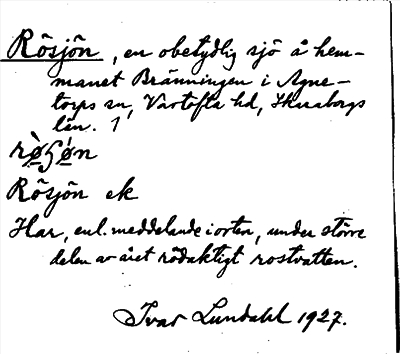 Rösjön, en obetydlig sjö å hem-
manet Bränningen i Agne-
torps sn, Vartofta hd, Skaraborgs
län. 1
rø̀ʂø̀n
Rösjön ek
Har, enl. meddelande i orten, under större
delen av året rödaktigt rostvatten.
Ivar Lundahl 1927.